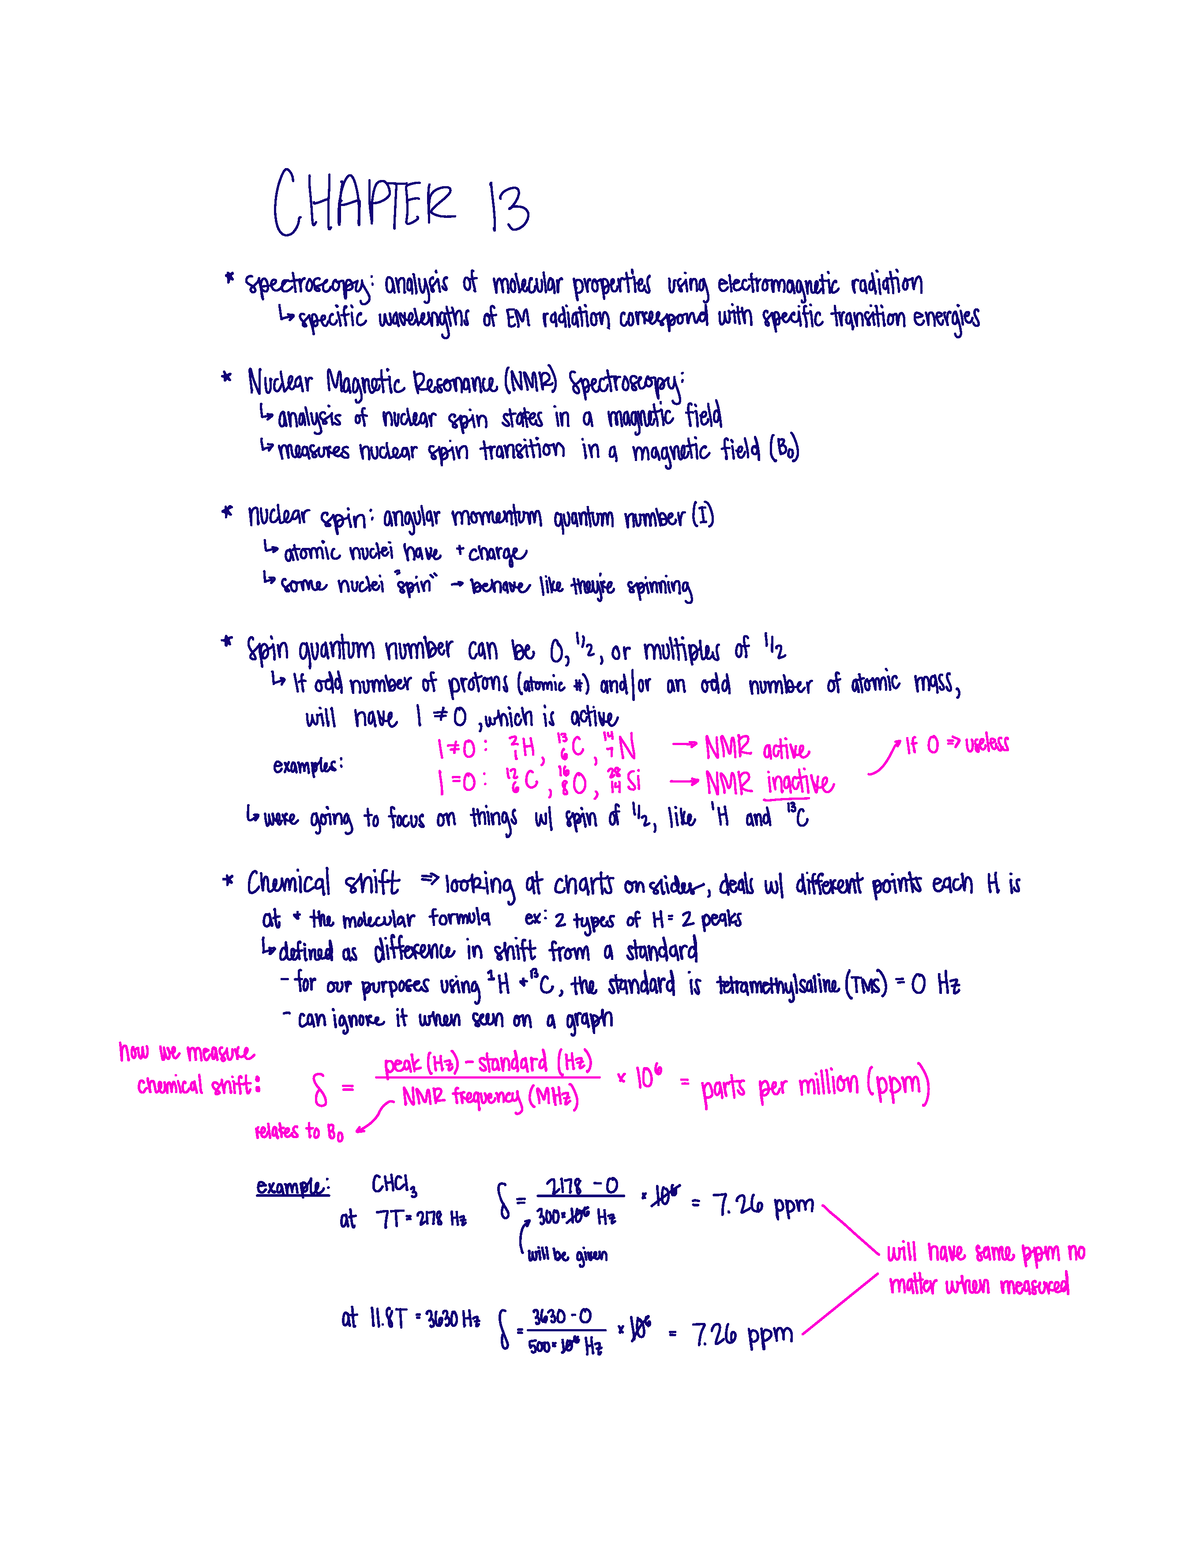 CHAPTER 13
* Spectroscopy: analysis of molecular properties using electromagnetic radiation
↳ specific wavelengths of EM radiation correspond with specific transition energies
* Nuclear Magnetic Resonance (NMR) Spectroscopy:
↳ analysis of nuclear spin states in a magnetic field
↳ measures nuclear spin transition in a magnetic field (B₀)
* nuclear spin: angular momentum quantum number (I)
↳ atomic nuclei have + charge
↳ some nuclei "spin" → behave like they're spinning
* Spin quantum number can be 0, 1/2, or multiples of 1/2
↳ If odd number of protons (atomic #) and/or an odd number of atomic mass,
will have I ≠ 0, which is active
examples:
I ≠ 0: ²₁H, ¹³₆C, ¹⁴₇N → NMR active
I = 0: ¹²₆C, ¹⁶₈O, ²⁸₁₄Si → NMR inactive
If 0 ⇒ useless
↳ were going to focus on things w/ spin of 1/2, like ¹H and ¹³C
* Chemical shift ⇒ looking at charts on slides, deals w/ different points each H is
at + the molecular formula ex: 2 types of H = 2 peaks
↳ defined as difference in shift from a standard
- for our purposes using ¹H + ¹³C, the standard is tetramethylsaline (TMS) = 0 Hz
- can ignore it when seen on a graph
how we measure
chemical shift:
δ = peak (Hz) - standard (Hz) / NMR frequency (MHz) × 10⁶ = parts per million (ppm)
relates to B₀
example: CHCl₃
at 7T = 2178 Hz δ = 2178 - 0 / 300×10⁶ Hz × 10⁶ = 7.26 ppm
will be given
will have same ppm no
matter when measured
at 11.8T = 3630 Hz δ = 3630 - 0 / 500×10⁶ Hz × 10⁶ = 7.26 ppm